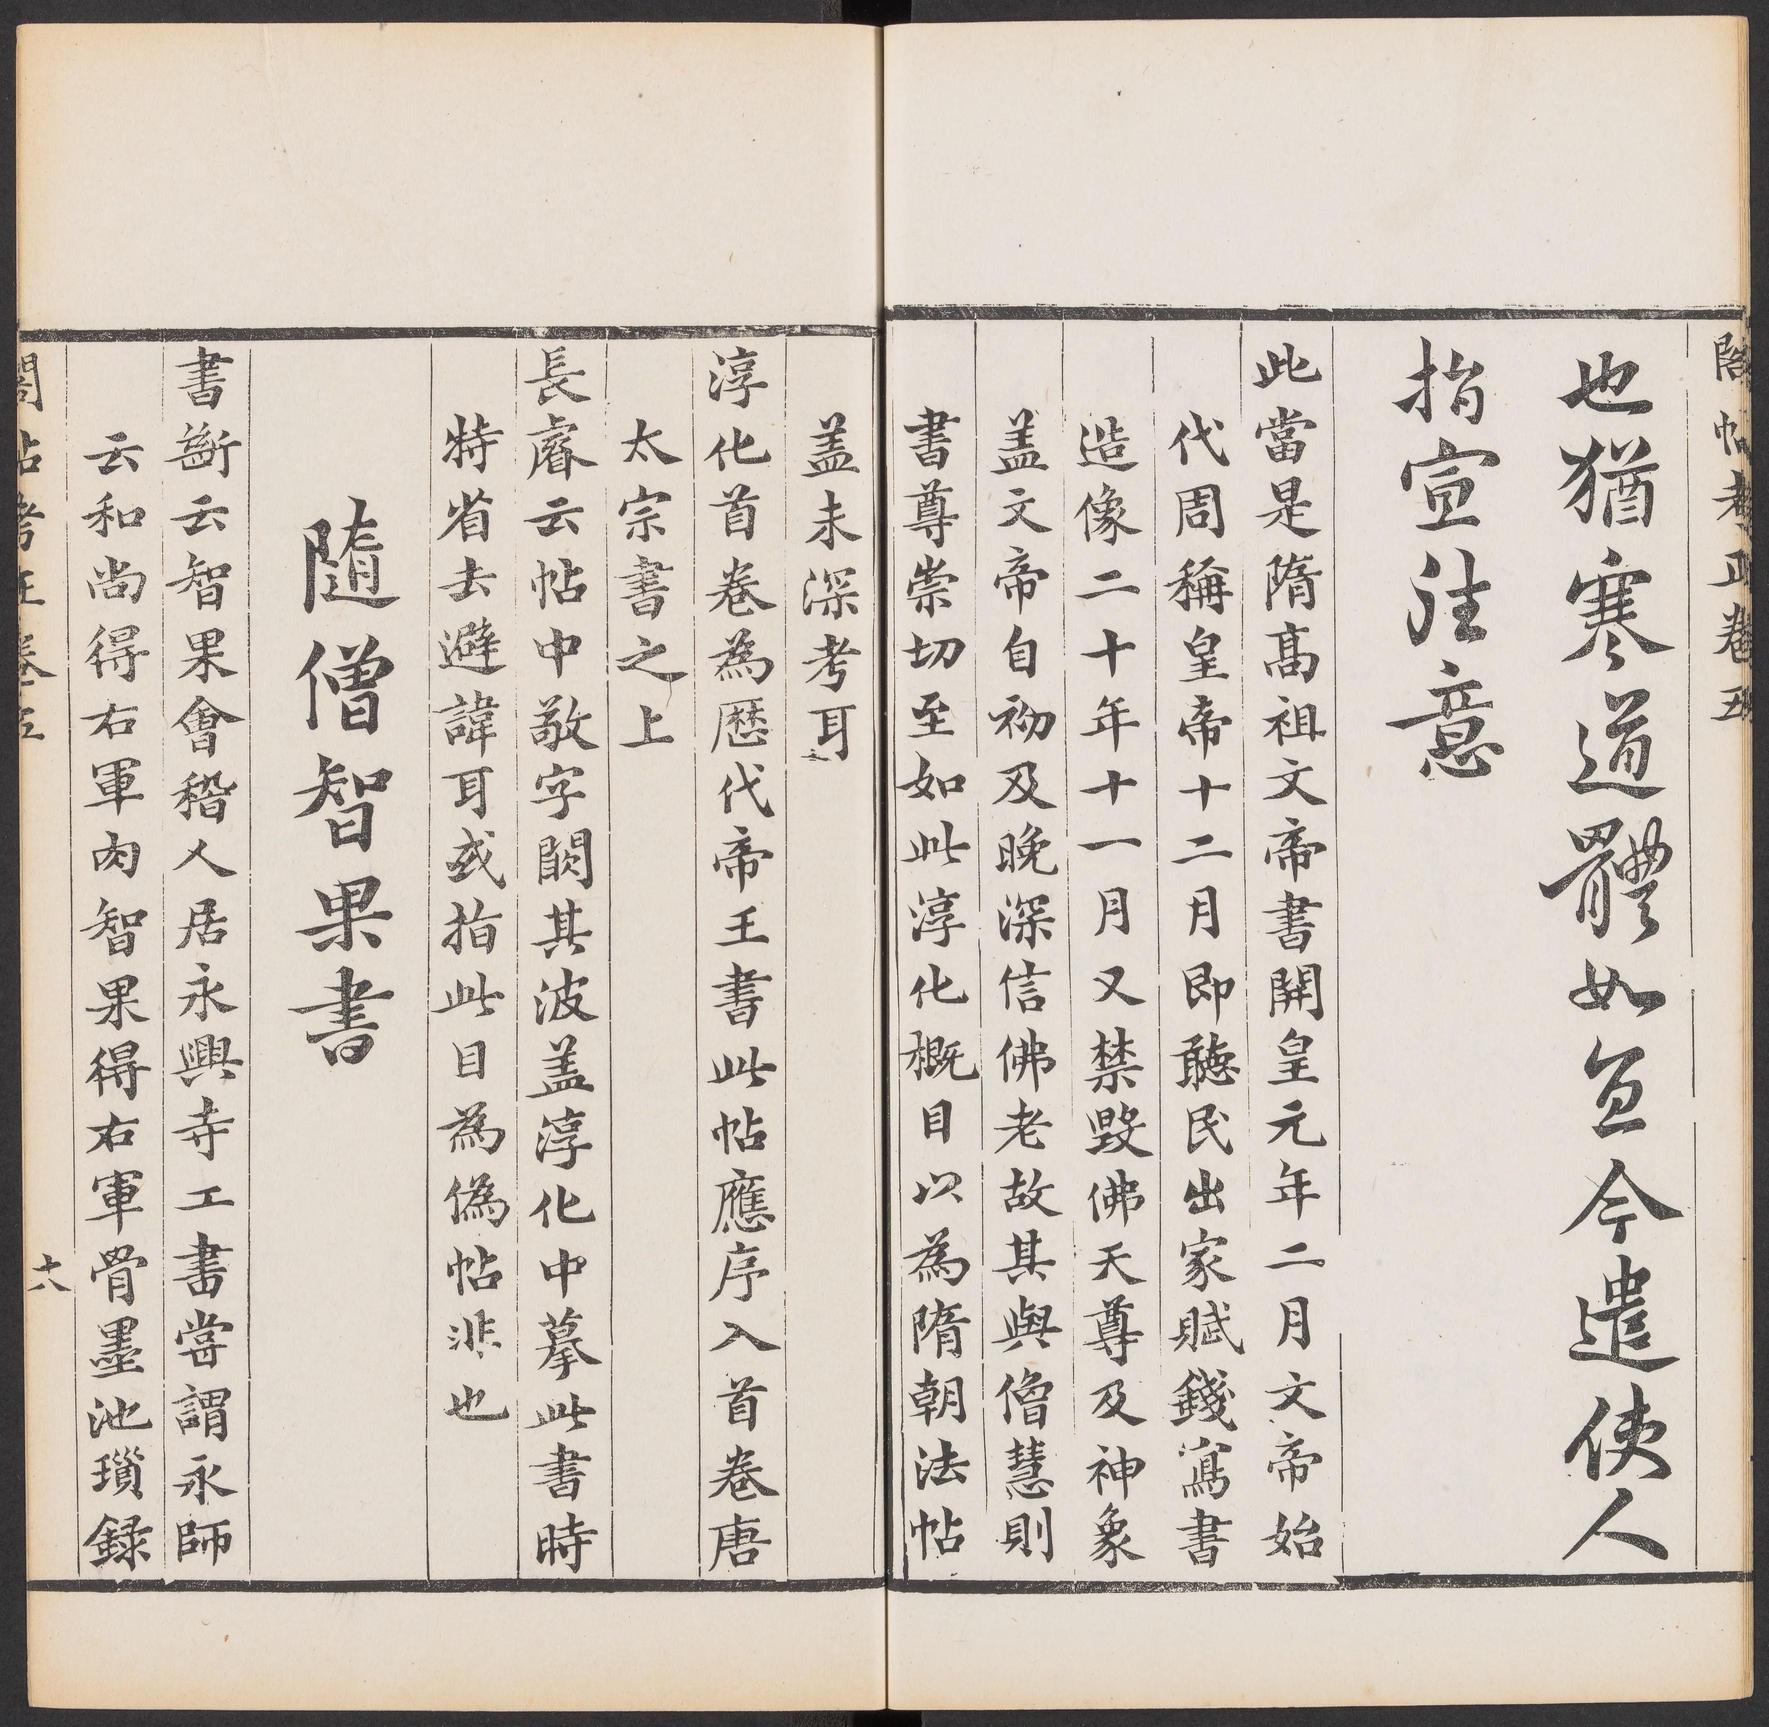 閣帖考正卷五
也猶寒道體如宜今遣使人
指宣往意
此當是隋高祖文帝書開皇元年二月文帝始
代周稱皇帝十二月即聽民出家賦錢寫書
造像二十年十一月又禁毀佛天尊及神象
盖文帝自初及晚深信佛老故其與僧慧則
書尊崇切至如此淳化概目以為隋朝法帖
盖未深考耳
淳化首卷為歷代帝王書此帖應序入首卷唐
太宗書之上
長睿云帖中敬字闕其波盖淳化中摹此書時
特省去避諱耳或指此目為偽帖非也
隨僧智果書
書斷云智果會稽人居永興寺工書嘗謂永師
云和尚得右軍肉智果得右軍骨墨池瑣録
閣帖考正卷五
十八